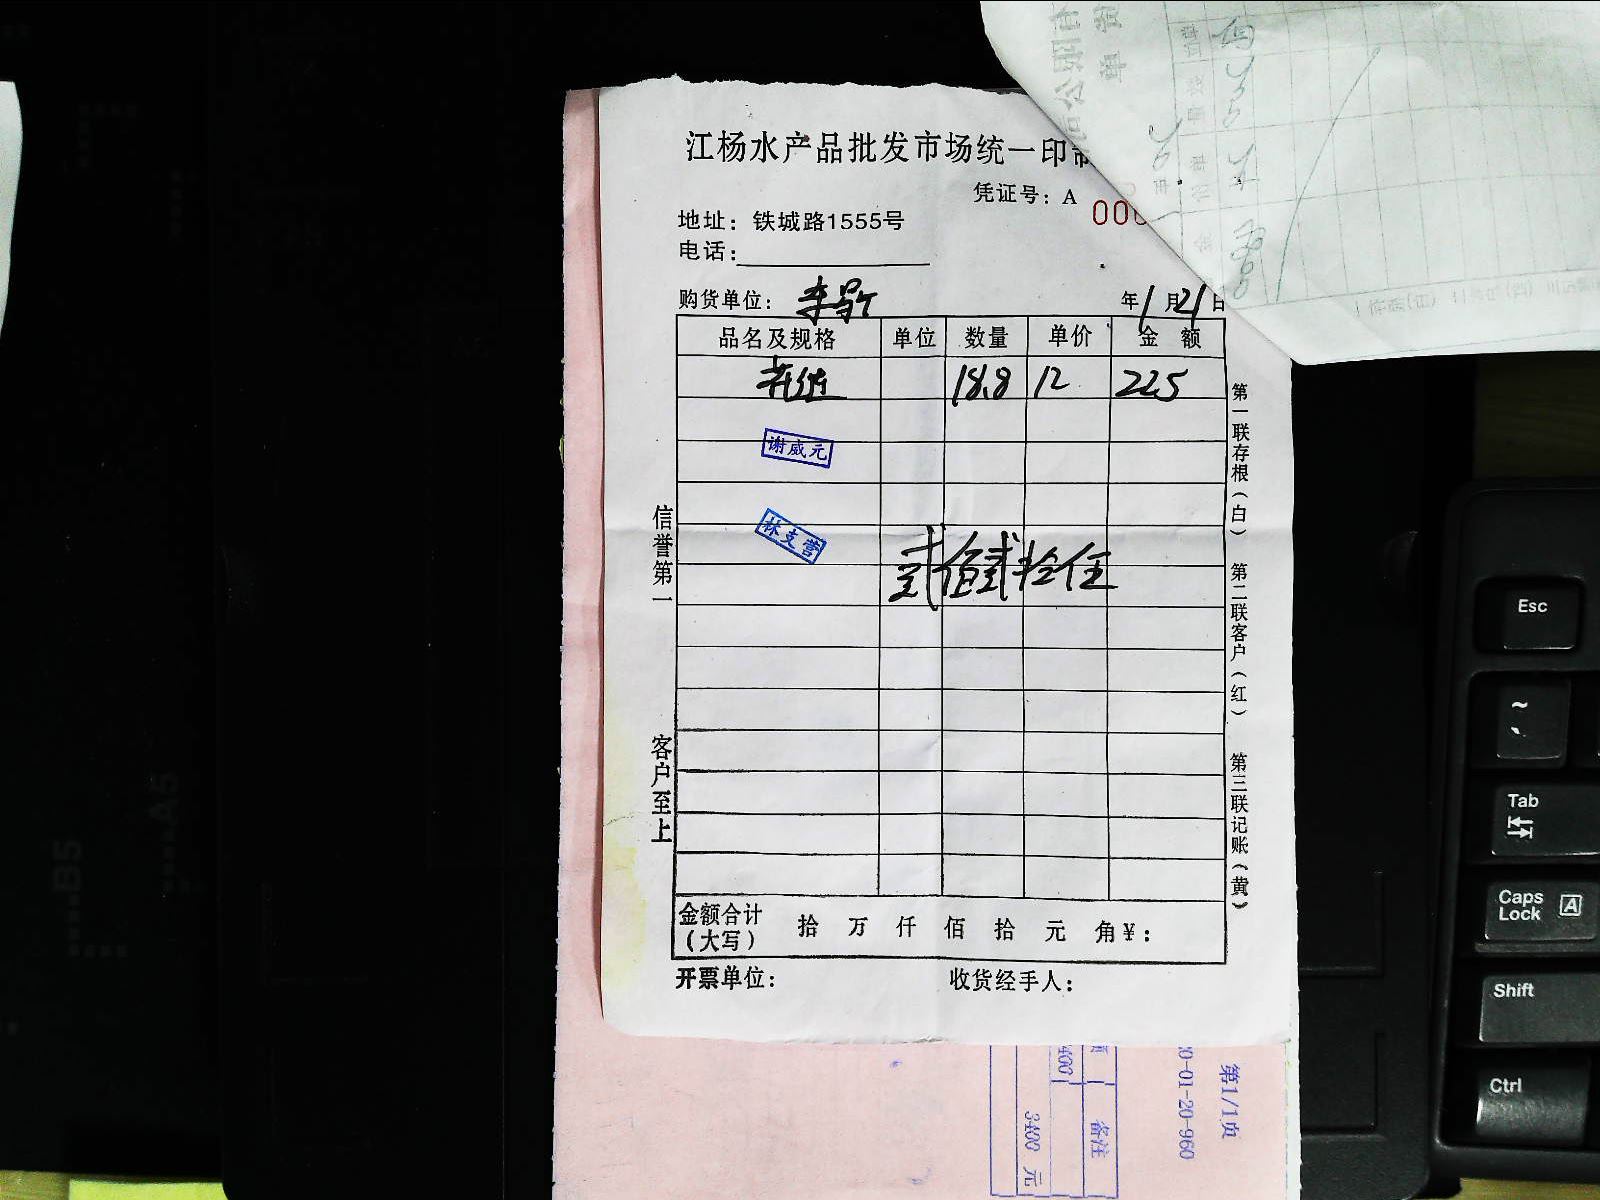 江杨水产品批发市场统一印制
凭证号：A 000
地址：铁城路1555号
电话：
购货单位：
年1月21日
品名及规格 单位 数量 单价 金额
花鲢 18.8 12 225
谢威元
林支营
贰佰贰拾伍
金额合计（大写） 拾 万 仟 佰 拾 元 角 ¥：
开票单位： 收货经手人：
信誉第一 客户至上
第一联存根（白） 第二联客户（红） 第三联记账（黄）
第1/1页
0-01-20-960
备注
400
3400 元
B5
A5
Esc
~
Tab
Caps Lock A
Shift
Ctrl